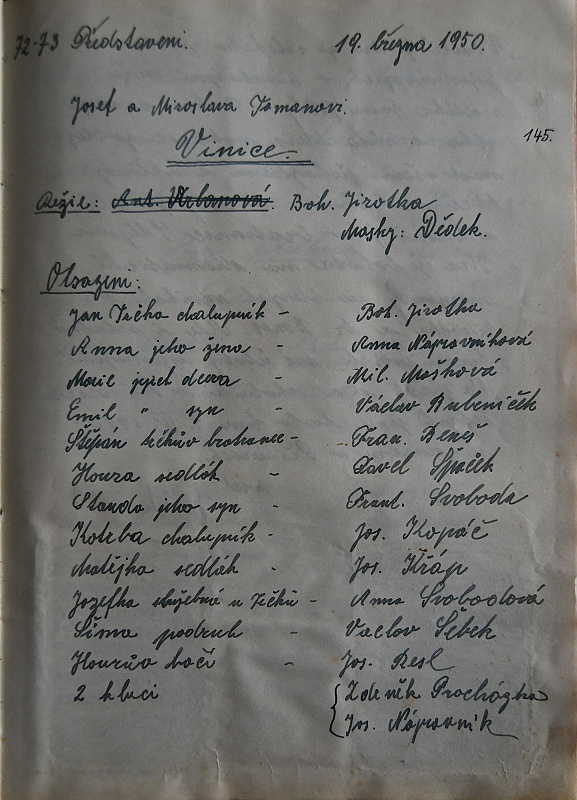 72-73 Představení. 19. března 1950.
Josef a Miroslava Tomanovi.
Vinice.
145.
Režie: Ant. Urbanová. Boh. Jirotka
Masky: Dědek.
Obsazení:
Jan Tichá chalupník - Boh. Jirotka
Anna jeho žena - Anna Náprovníková
Marie jejich dcera - Mil. Mašková
Emil " syn - Václav Bubeníček
Štěpán bratranec - Fran. Beneš
Houza sedlák - Pavel Špaček
Standa jeho syn - Frant. Svoboda
Kotrba chalupník - Jos. Kopáč
Matějka sedlák - Jos. Křáp
Jozefka služebná u - Anna Svobodová
Šíma podruh - Václav Šebek
Houzův - Jos. Resl
2 kluci Zdeněk Procházka
Jos. Náprovník